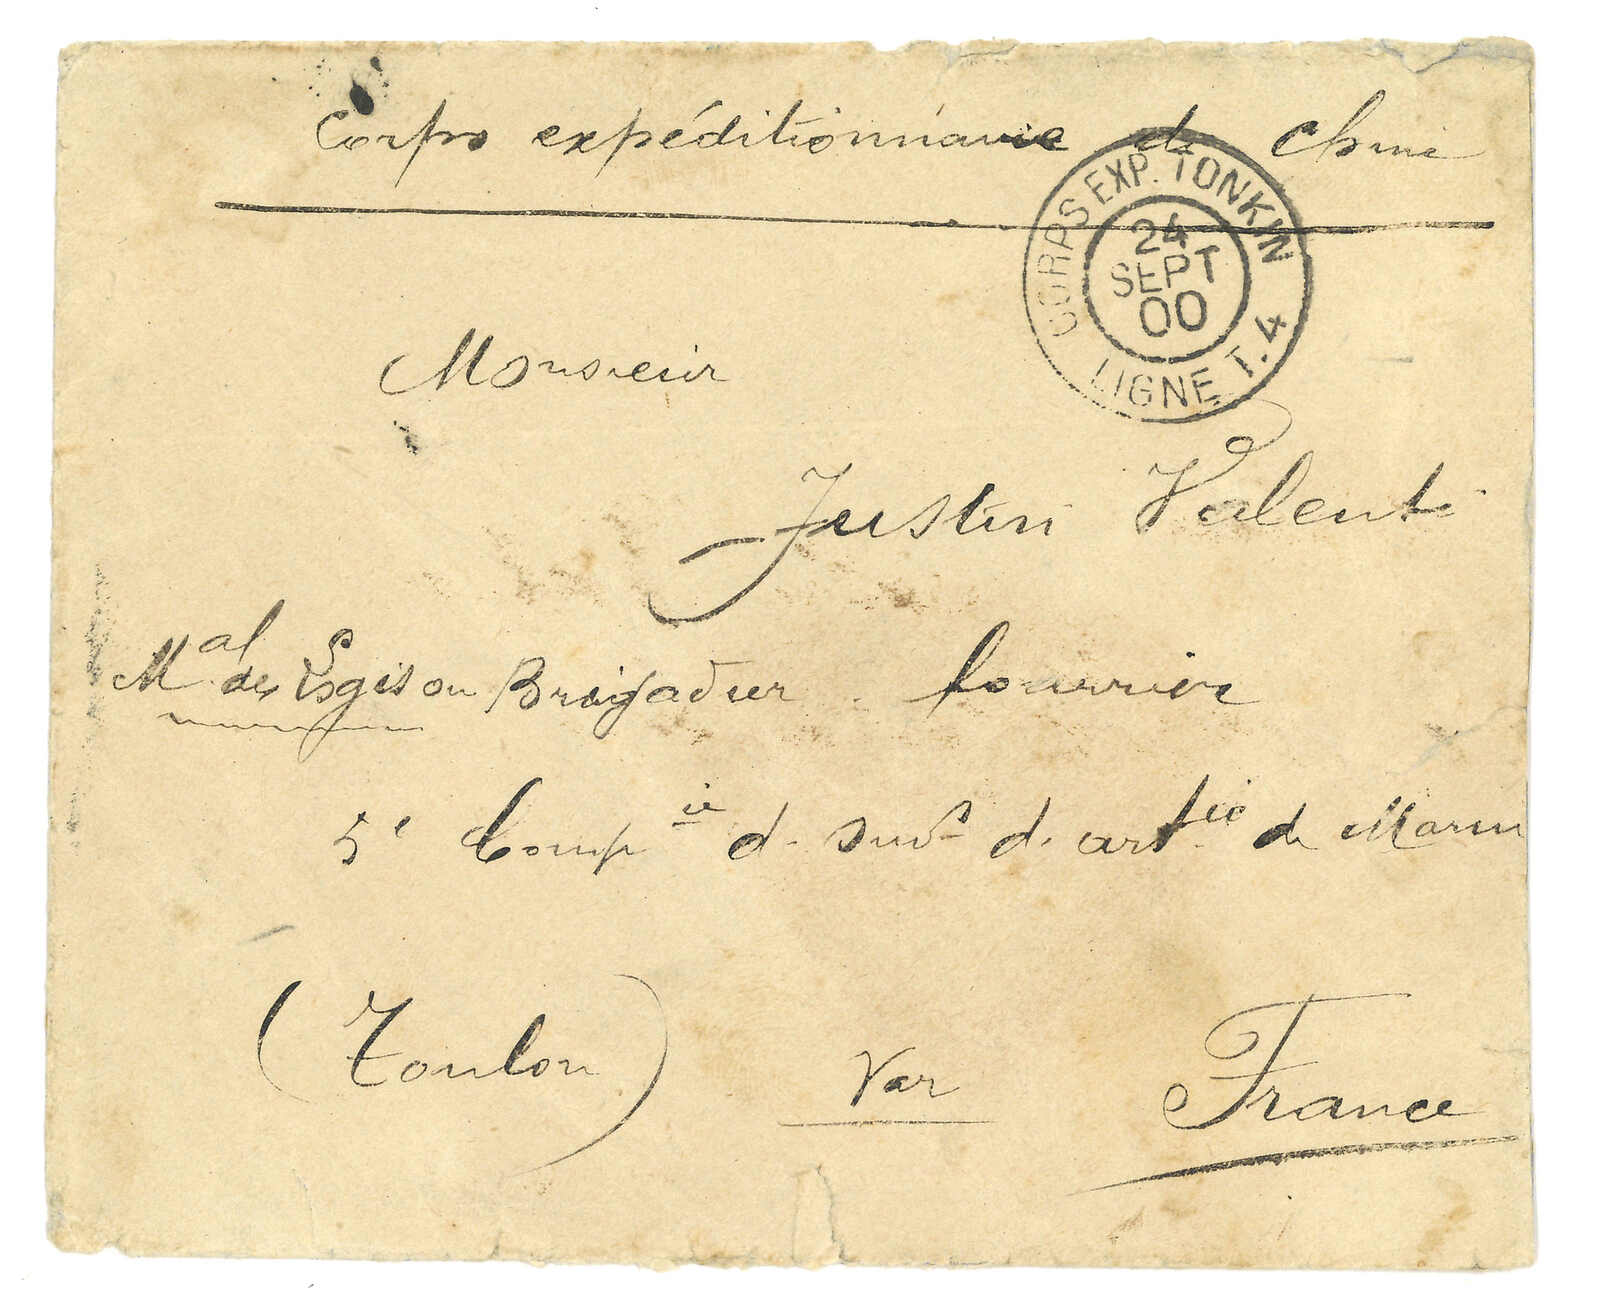 Corps expéditionnaire de Chine
CORPS EXP. TONKIN
24
SEPT
00
LIGNE T. 4
Monsieur
Justin Valenti
Mal des Lgis ou Brigadier fourrier
5e Compie d. d. artie de Marin
(Toulon) Var France